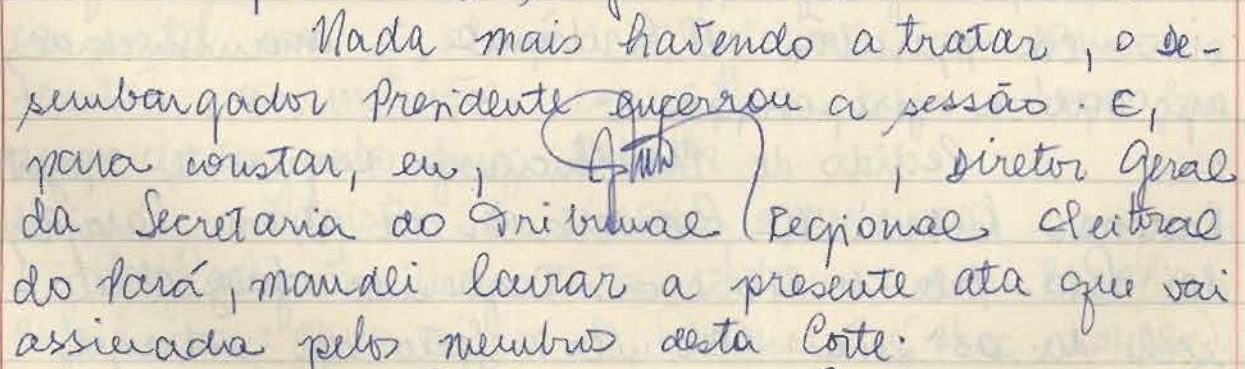 Nada mais havendo a tratar, o De-
sembargador Presidente encerrou a sessão. E,
para constar, eu, , Diretor Geral
da Secretaria do Tribunal Regional Eleitoral
do Pará, mandei lavrar a presente ata que vai
assinada pelos membros desta Corte.